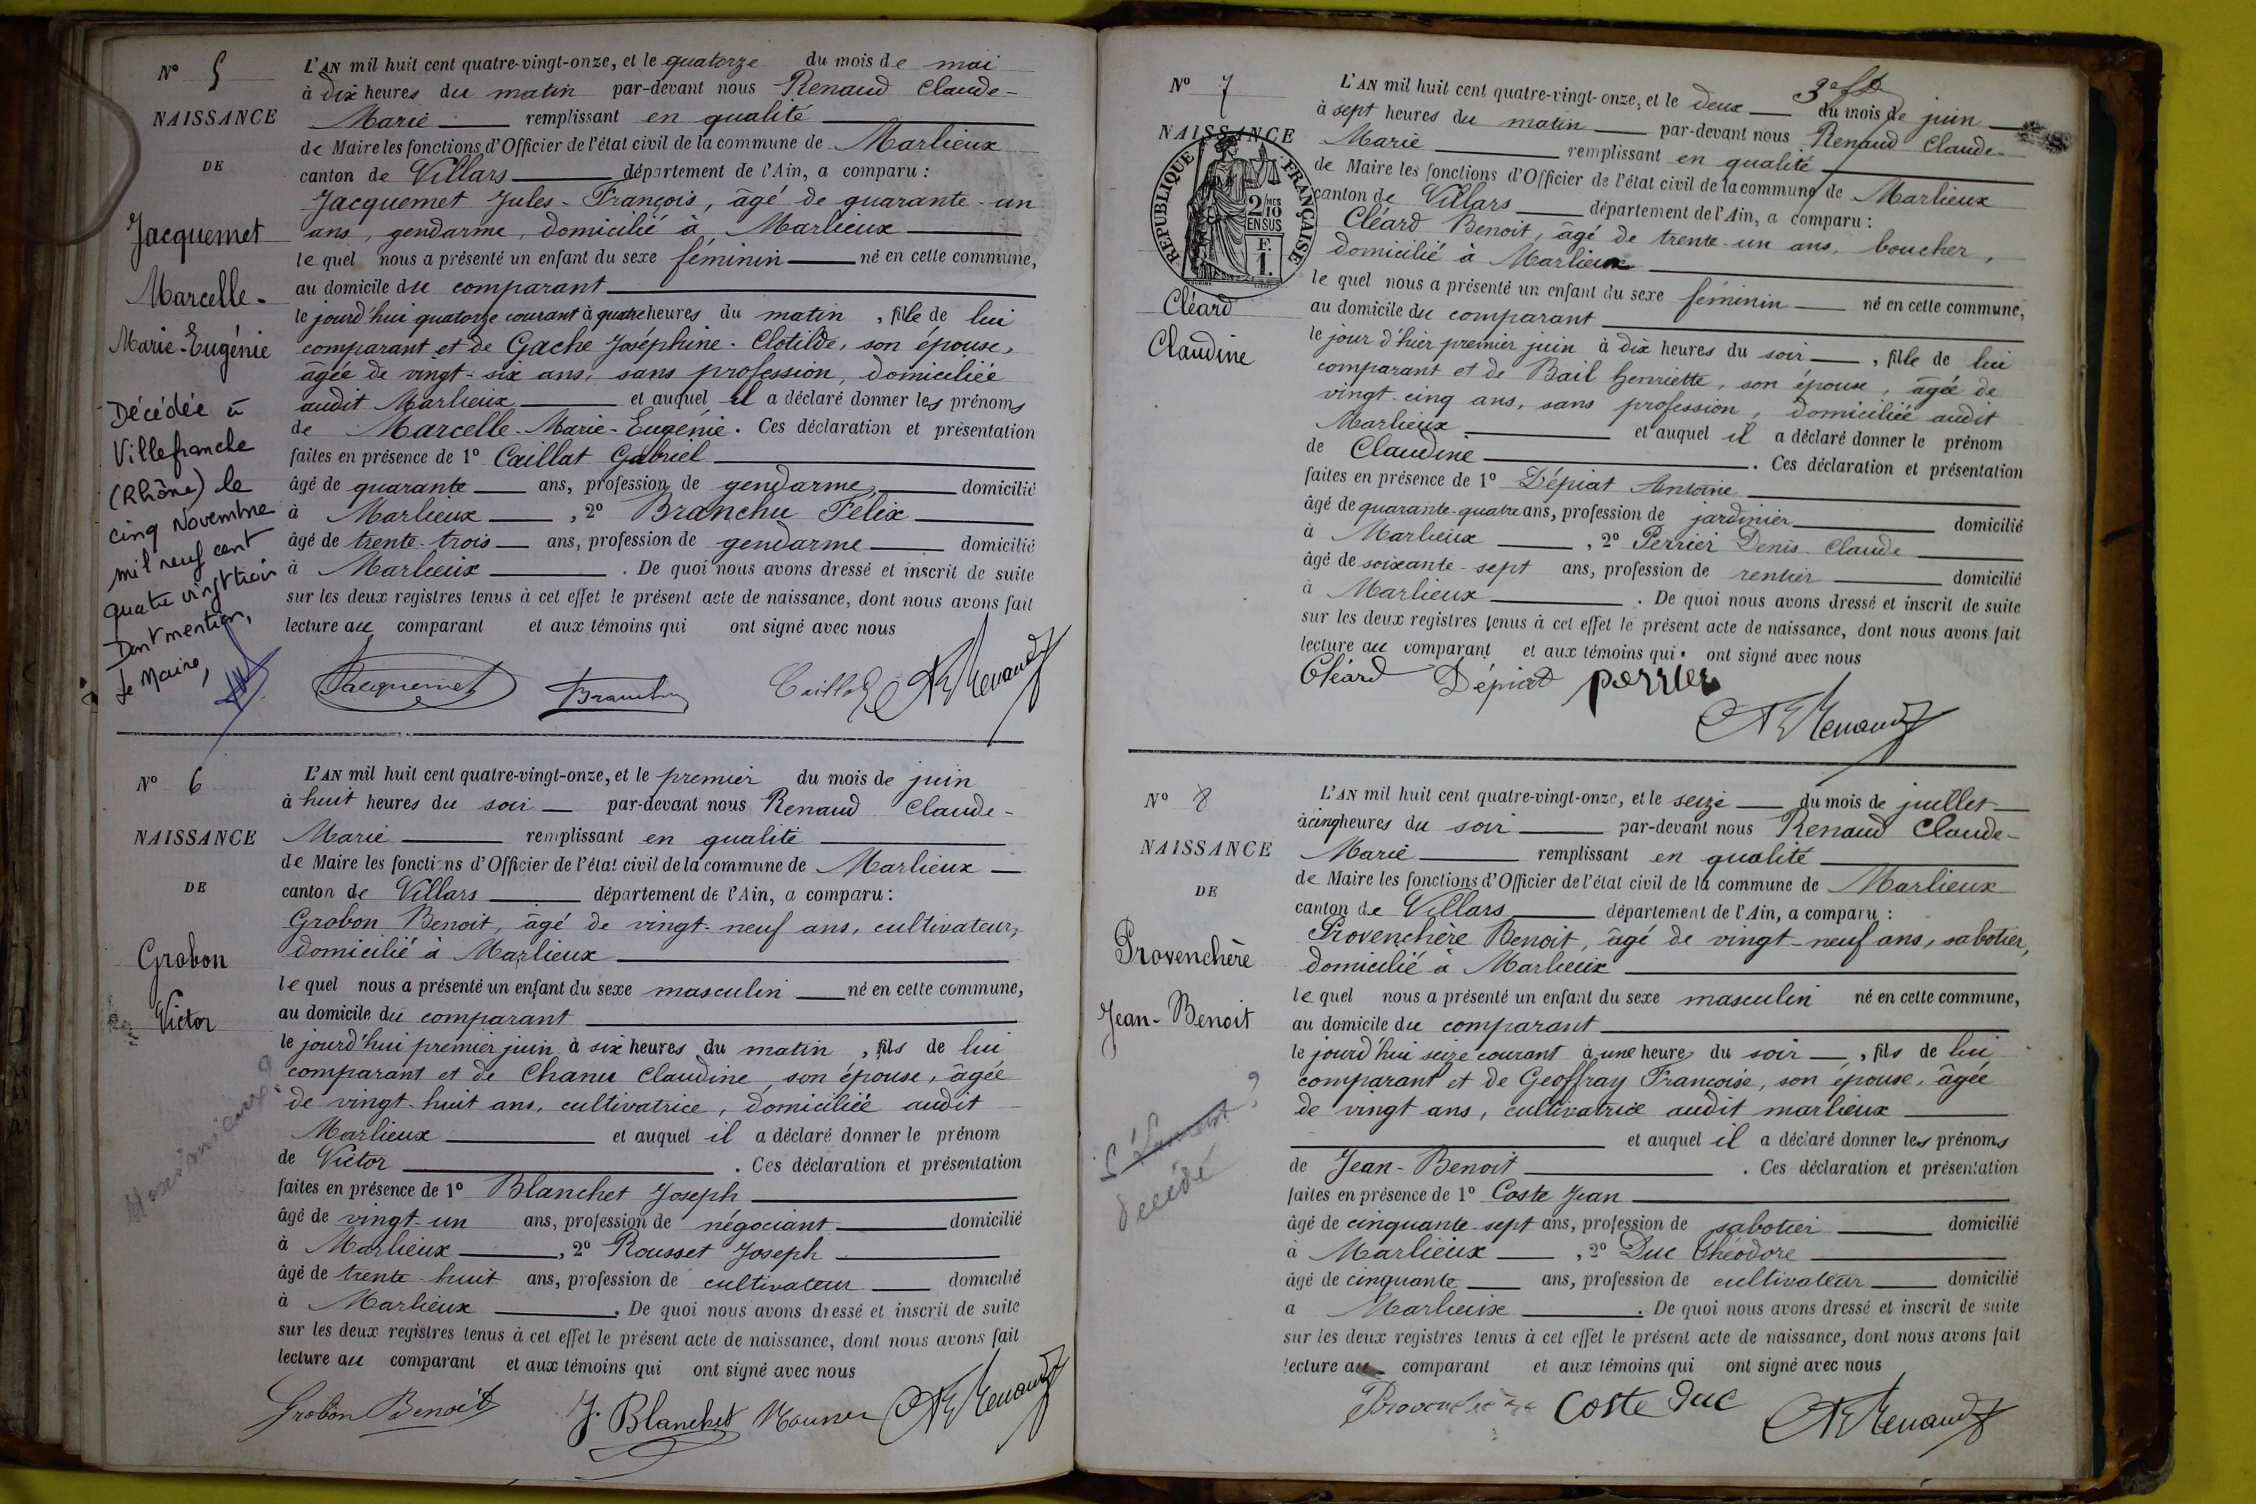 N° 5
NAISSANCE
DE
Jacquemet
Marcelle-
Marie-Eugénie
Décédée à
Villefranche
(Rhône) le
cinq Novembre
mil neuf cent
quatre vingt trois
Dont mention,
Le Maire,
L'AN mil huit cent quatre-vingt-onze, et le quatorze du mois de mai
à dix heures du matin par-devant nous Renaud Claude-
Marie remplissant en qualité
de Maire les fonctions d'Officier de l'état civil de la commune de Marlieux
canton de Villars département de l'Ain, a comparu :
Jacquemet Jules-François, âgé de quarante-un
ans, gendarme, domicilié à Marlieux
le quel nous a présenté un enfant du sexe féminin né en cette commune,
au domicile du comparant
le jourd'hui quatorze courant à quatre heures du matin, fille de lui
comparant et de Gache Joséphine-Clotilde, son épouse,
âgée de vingt-six ans, sans profession, domiciliée
audit Marlieux et auquel il a déclaré donner les prénoms
de Marcelle-Marie-Eugénie. Ces déclaration et présentation
faites en présence de 1° Caillat Gabriel
âgé de quarante ans, profession de gendarme, domicilié
à Marlieux, 2° Branchu Félix
âgé de trente-trois ans, profession de gendarme domicilié
à Marlieux. De quoi nous avons dressé et inscrit de suite
sur les deux registres tenus à cet effet le présent acte de naissance, dont nous avons fait
lecture au comparant et aux témoins qui ont signé avec nous
Jacquemet Branchu Caillat Renaud
N° 6
NAISSANCE
DE
Grobon
Victor
L'AN mil huit cent quatre-vingt-onze, et le premier du mois de juin
à huit heures du soir par-devant nous Renaud Claude-
Marie remplissant en qualité
de Maire les fonctions d'Officier de l'état civil de la commune de Marlieux
canton de Villars département de l'Ain, a comparu :
Grobon Benoit, âgé de vingt-neuf ans, cultivateur,
domicilié à Marlieux
le quel nous a présenté un enfant du sexe masculin né en cette commune,
au domicile du comparant
le jourd'hui premier juin à six heures du matin, fils de lui
comparant et de Chanu Claudine, son épouse, âgée
de vingt-huit ans, cultivatrice, domiciliée audit
Marlieux et auquel il a déclaré donner le prénom
de Victor. Ces déclaration et présentation
faites en présence de 1° Blanchet Joseph
âgé de vingt-un ans, profession de négociant domicilié
à Marlieux, 2° Rousset Joseph
âgé de trente-huit ans, profession de cultivateur domicilié
à Marlieux. De quoi nous avons dressé et inscrit de suite
sur les deux registres tenus à cet effet le présent acte de naissance, dont nous avons fait
lecture au comparant et aux témoins qui ont signé avec nous
Grobon Benoit J. Blanchet Renaud
N° 7
NAISSANCE
REPUBLIQUE FRANÇAISE
2/10 EN SUS
F. 1.
Cléard
Claudine
L'AN mil huit cent quatre-vingt-onze, et le deux du mois de juin
à sept heures du matin par-devant nous Renaud Claude-
Marie remplissant en qualité
de Maire les fonctions d'Officier de l'état civil de la commune de Marlieux
canton de Villars département de l'Ain, a comparu :
Cléard Benoit, âgé de trente-un ans, boucher,
domicilié à Marlieux
le quel nous a présenté un enfant du sexe féminin né en cette commune,
au domicile du comparant
le jour d'hier premier juin à dix heures du soir, fille de lui
comparant et de Bail Henriette, son épouse, âgée de
vingt-cinq ans, sans profession, domiciliée audit
Marlieux et auquel il a déclaré donner le prénom
de Claudine. Ces déclaration et présentation
faites en présence de 1° Dépiat Antoine
âgé de quarante-quatre ans, profession de jardinier domicilié
à Marlieux, 2° Perrier Denis-Claude
âgé de soixante-sept ans, profession de rentier domicilié
à Marlieux. De quoi nous avons dressé et inscrit de suite
sur les deux registres tenus à cet effet le présent acte de naissance, dont nous avons fait
lecture au comparant et aux témoins qui ont signé avec nous
Cléard Dépiat perrier
Renaud
N° 8
NAISSANCE
DE
Provenchère
Jean-Benoit
décédé
L'AN mil huit cent quatre-vingt-onze, et le seize du mois de juillet
à cinq heures du soir par-devant nous Renaud Claude-
Marie remplissant en qualité
de Maire les fonctions d'Officier de l'état civil de la commune de Marlieux
canton de Villars département de l'Ain, a comparu :
Provenchère Benoit, âgé de vingt-neuf ans, sabotier,
domicilié à Marlieux
le quel nous a présenté un enfant du sexe masculin né en cette commune,
au domicile du comparant
le jourd'hui seize courant à une heure du soir, fils de lui
comparant et de Geoffray Françoise, son épouse, âgée
de vingt ans, cultivatrice audit marlieux
et auquel il a déclaré donner les prénoms
de Jean-Benoit. Ces déclaration et présentation
faites en présence de 1° Coste Jean
âgé de cinquante-sept ans, profession de sabotier domicilié
à Marlieux, 2° Duc Théodore
âgé de cinquante ans, profession de cultivateur domicilié
a Marlieux. De quoi nous avons dressé et inscrit de suite
sur les deux registres tenus à cet effet le présent acte de naissance, dont nous avons fait
lecture au comparant et aux témoins qui ont signé avec nous
Provenchère Coste Duc Renaud